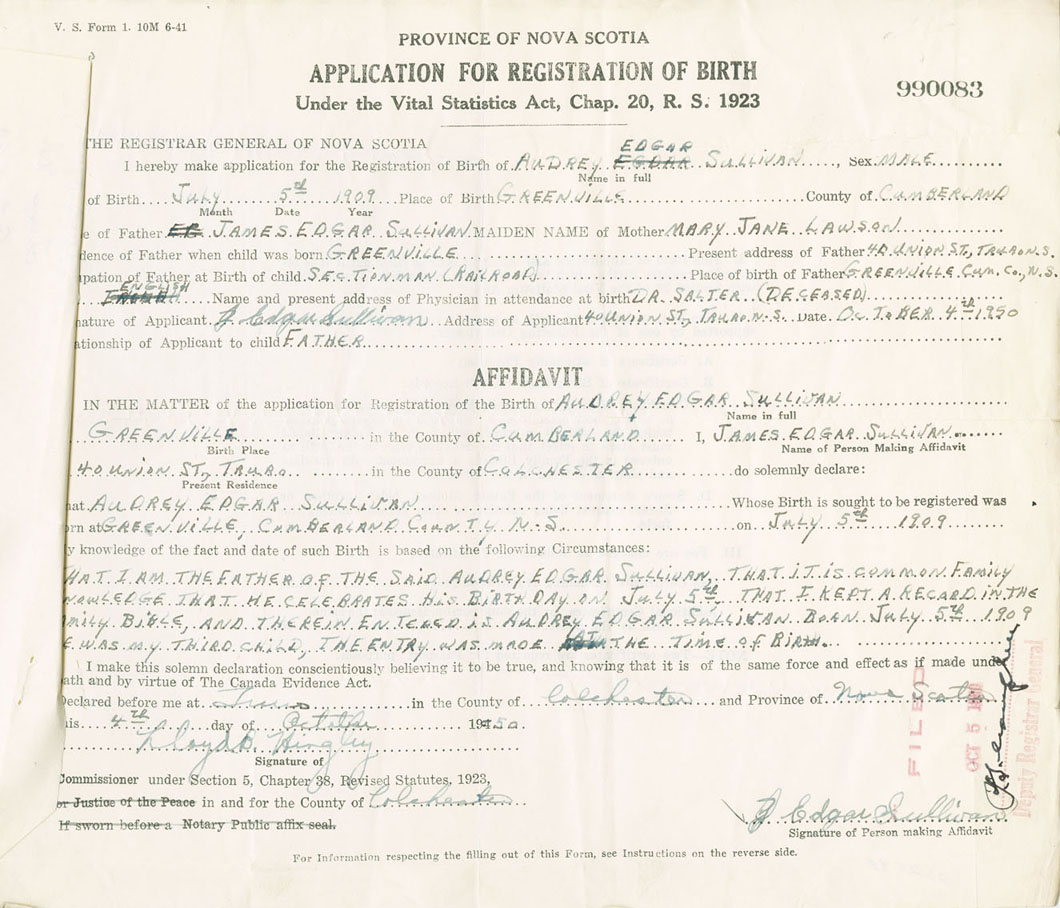 V. S. Form 1. 10M 6-41
PROVINCE OF NOVA SCOTIA
APPLICATION FOR REGISTRATION OF BIRTH
990083
Under the Vital Statistics Act, Chap. 20, R. S. 1923
THE REGISTRAR GENERAL OF NOVA SCOTIA
EDGAR
I hereby make application for the Registration of Birth of AUDREY EGDAR SULLIVAN, Sex MALE
Name in full
of Birth July 5th 1909 Place of Birth GREENVILLE County of CUMBERLAND
Month Date Year
e of Father JAMES EDGAR SULLIVAN MAIDEN NAME of Mother MARY JANE LAWSON
dence of Father when child was born GREENVILLE Present address of Father 40 UNION ST, TRURO N.S.
upation of Father at Birth of child SECTIONMAN (RAILROAD) Place of birth of Father GREENVILLE CUM. CO., N.S.
ENGLISH Name and present address of Physician in attendance at birth DR. SALTER (DECEASED)
nature of Applicant J Edgar Sullivan Address of Applicant 40 UNION ST, TRURO N.S. Date OCTOBER 4th 1950
ationship of Applicant to child FATHER
AFFIDAVIT
IN THE MATTER of the application for Registration of the Birth of AUDREY EDGAR SULLIVAN
Name in full
GREENVILLE in the County of CUMBERLAND I, JAMES EDGAR SULLIVAN
Birth Place Name of Person Making Affidavit
40 UNION ST, TRURO in the County of COLCHESTER do solemnly declare:
Present Residence
at AUDREY EDGAR SULLIVAN Whose Birth is sought to be registered was
rn at GREENVILLE, CUMBERLAND COUNTY N.S. on July 5th 1909
y knowledge of the fact and date of such Birth is based on the following Circumstances:
HAT I AM THE FATHER OF THE SAID AUDREY EDGAR SULLIVAN, THAT IT IS COMMON FAMILY
NOWLEDGE THAT HE CELEBRATES HIS BIRTHDAY ON July 5th THAT I KEPT A RECARD IN THE
MILY BIBLE, AND THEREIN ENTERED IS AUDREY EDGAR SULLIVAN BORN July 5th 1909
E WAS MY THIRD CHILD, THE ENTRY WAS MADE AT THE TIME OF BIRTH.
I make this solemn declaration conscientiously believing it to be true, and knowing that it is of the same force and effect as if made unde
ath and by virtue of The Canada Evidence Act.
Declared before me at Truro in the County of Colchester and Province of Nova Scotia
his 4th day of October 1950
Lloyd Hingley
Signature of
Commissioner under Section 5, Chapter 38, Revised Statutes, 1923,
or Justice of the Peace in and for the County of Colchester
If sworn before a Notary Public affix seal.
FILED
OCT 5 1950
Deputy Registrar General
J Edgar Sullivan
Signature of Person making Affidavit
For Information respecting the filling out of this Form, see Instructions on the reverse side.